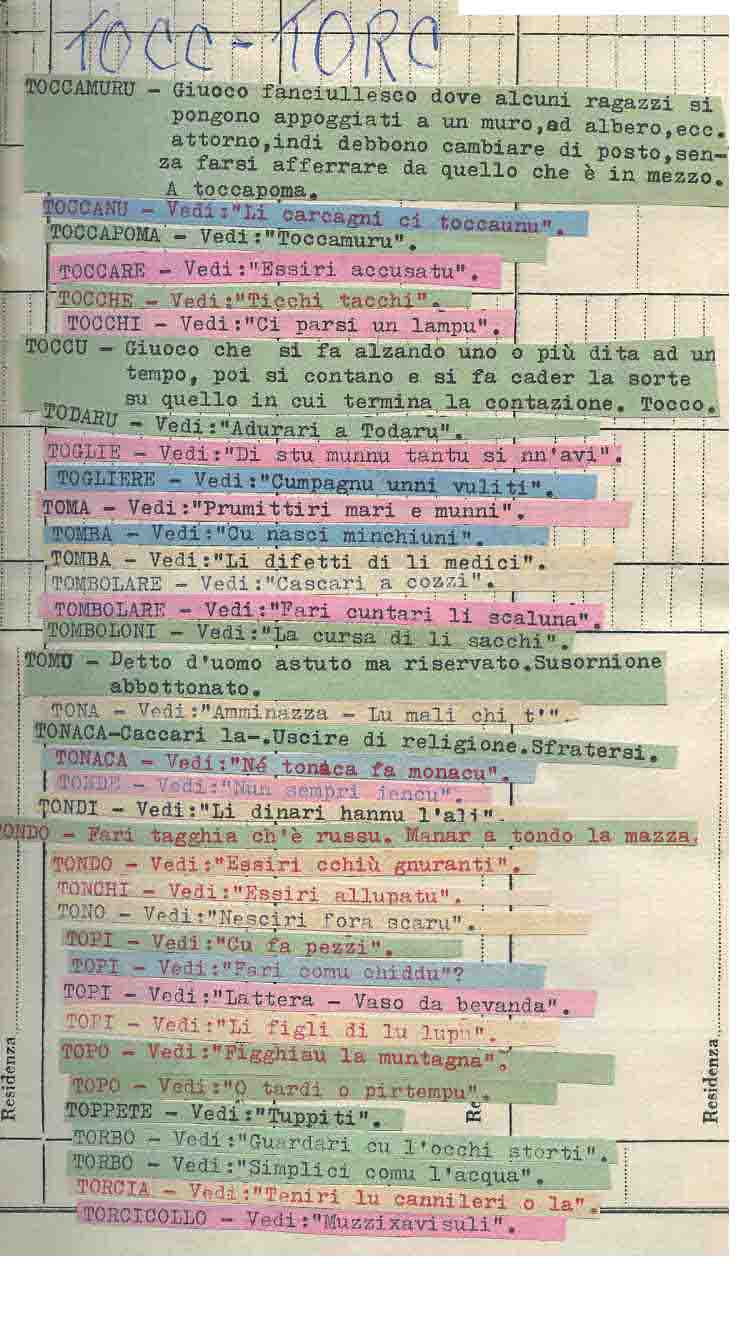 TOCC-TORC
TOCCAMURU - Giuoco fanciullesco dove alcuni ragazzi si
pongono appoggiati a un muro,ad albero,ecc.
attorno,indi debbono cambiare di posto,sen-
za farsi afferrare da quello che è in mezzo.
A toccapoma.
TOCCANU - Vedi:"Li carcagni ci toccaunu".
TOCCAPOMA - Vedi:"Toccamuru".
TOCCARE - Vedi:"Essiri accusatu".
TOCCHE - Vedi:"Ticchi tacchi".
TOCCHI - Vedi:"Ci parsi un lampu".
TOCCU - Giuoco che si fa alzando uno o più dita ad un
tempo, poi si contano e si fa cader la sorte
su quello in cui termina la contazione. Tocco.
TODARU - Vedi:"Adurari a Todaru".
TOGLIE - Vedi:"Di stu munnu tantu si nn'avi".
TOGLIERE - Vedi:"Cumpagnu unni vuliti".
TOMA - Vedi:"Prumittiri mari e munni".
TOMBA - Vedi:"Cu nasci minchiuni".
TOMBA - Vedi:"Li difetti di li medici".
TOMBOLARE - Vedi:"Cascari a cozzi".
TOMBOLARE - Vedi:"Fari cuntari li scaluna".
TOMBOLONI - Vedi:"La cursa di li sacchi".
TOMU - Detto d'uomo astuto ma riservato.Susornione
abbottonato.
TONA - Vedi:"Amminazza - Lu mali chi t'".
TONACA-Caccari la-.Uscire di religione.Sfratersi.
TONACA - Vedi:"Né tonaca fa monacu".
TONDE - Vedi:"Nun sempri jencu".
TONDI - Vedi:"Li dinari hannu l'ali".
TONDO - Fari tagghia ch'è russu. Manar a tondo la mazza.
TONDO - Vedi:"Essiri cchiù gnuranti".
TONCHI - Vedi:"Essiri allupatu".
TONO - Vedi:"Nesciri fora scaru".
TOPI - Vedi:"Cu fa pezzi".
TOPI - Vedi:"Fari comu chiddu"?
TOPI - Vedi:"Lattera - Vaso da bevanda".
TOPI - Vedi:"Li figli di lu lupu".
TOPO - Vedi:"Figghiau la muntagna".
TOPO - Vedi:"O tardi o pirtempu".
TOPPETE - Vedi:"Tuppiti".
TORBO - Vedi:"Guardari cu l'occhi storti".
TORBO - Vedi:"Simplici comu l'acqua".
TORCIA - Vedi:"Teniri lu cannileri o la".
TORCICOLLO - Vedi:"Muzzixavisuli".
Residenza
Re
Residenza